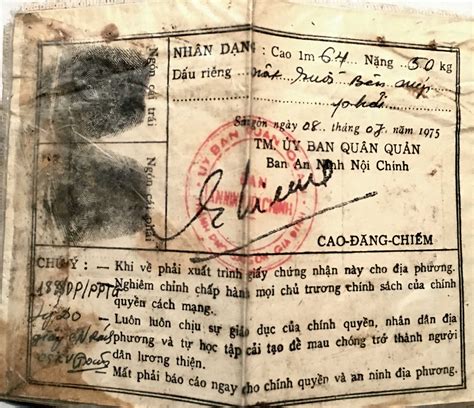 NHÂN DẠNG : Cao 1m 64 Nặng 50 kg
Dấu riêng : nốt ruồi Bên mép
phải
Ngón cái trái
Saigon ngày 08 tháng 07 năm 1975
TM. ỦY BAN QUÂN QUẢN
Ban An Ninh Nội Chính
Ngón cái phải
ỦY BAN QUÂN
BAN
AN NINH NỘI CHÍNH
GIA ĐỊNH
CAO-ĐĂNG-CHIẾM
CHÚ Ý : — Khi về phải xuất trình giấy chứng nhận này cho địa phương.
— Nghiêm chỉnh chấp hành mọi chủ trương chính sách của chính
quyền cách mạng.
— Luôn luôn chịu sự giáo dục của chính quyền, nhân dân địa
phương và tự học tập cải tạo để mau chóng trở thành người
dân lương thiện.
Mất phải báo cáo ngay cho chính quyền và an ninh địa phương.